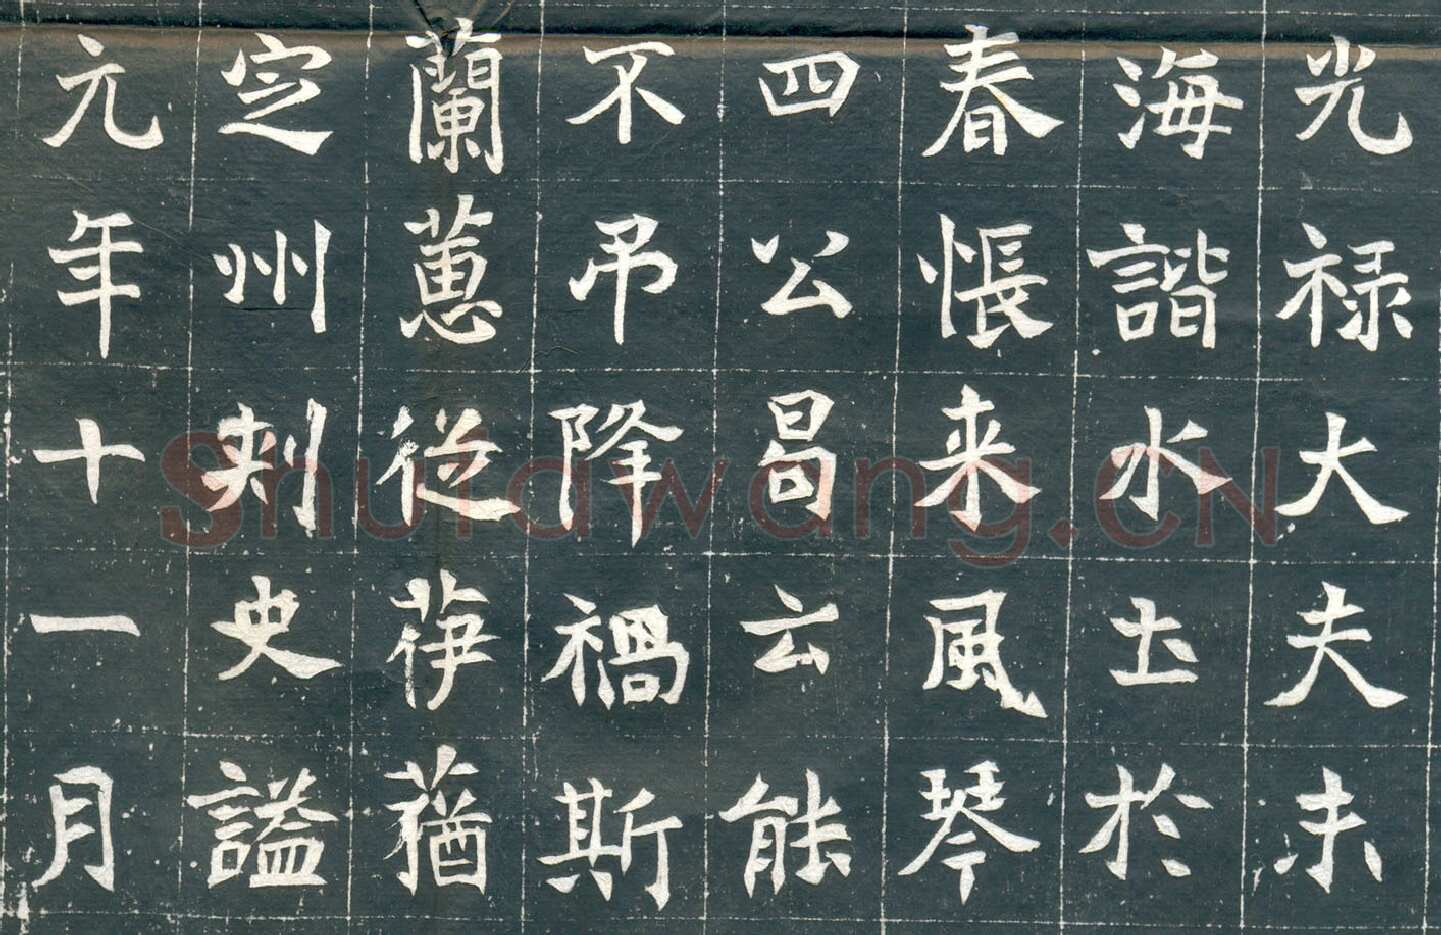 光禄大夫未
海諧水土於
春悵来風琴
四公曷云能
不弔降禍斯
蘭蕙從
定州刺史謚
元年十一月
Shufawang.CN